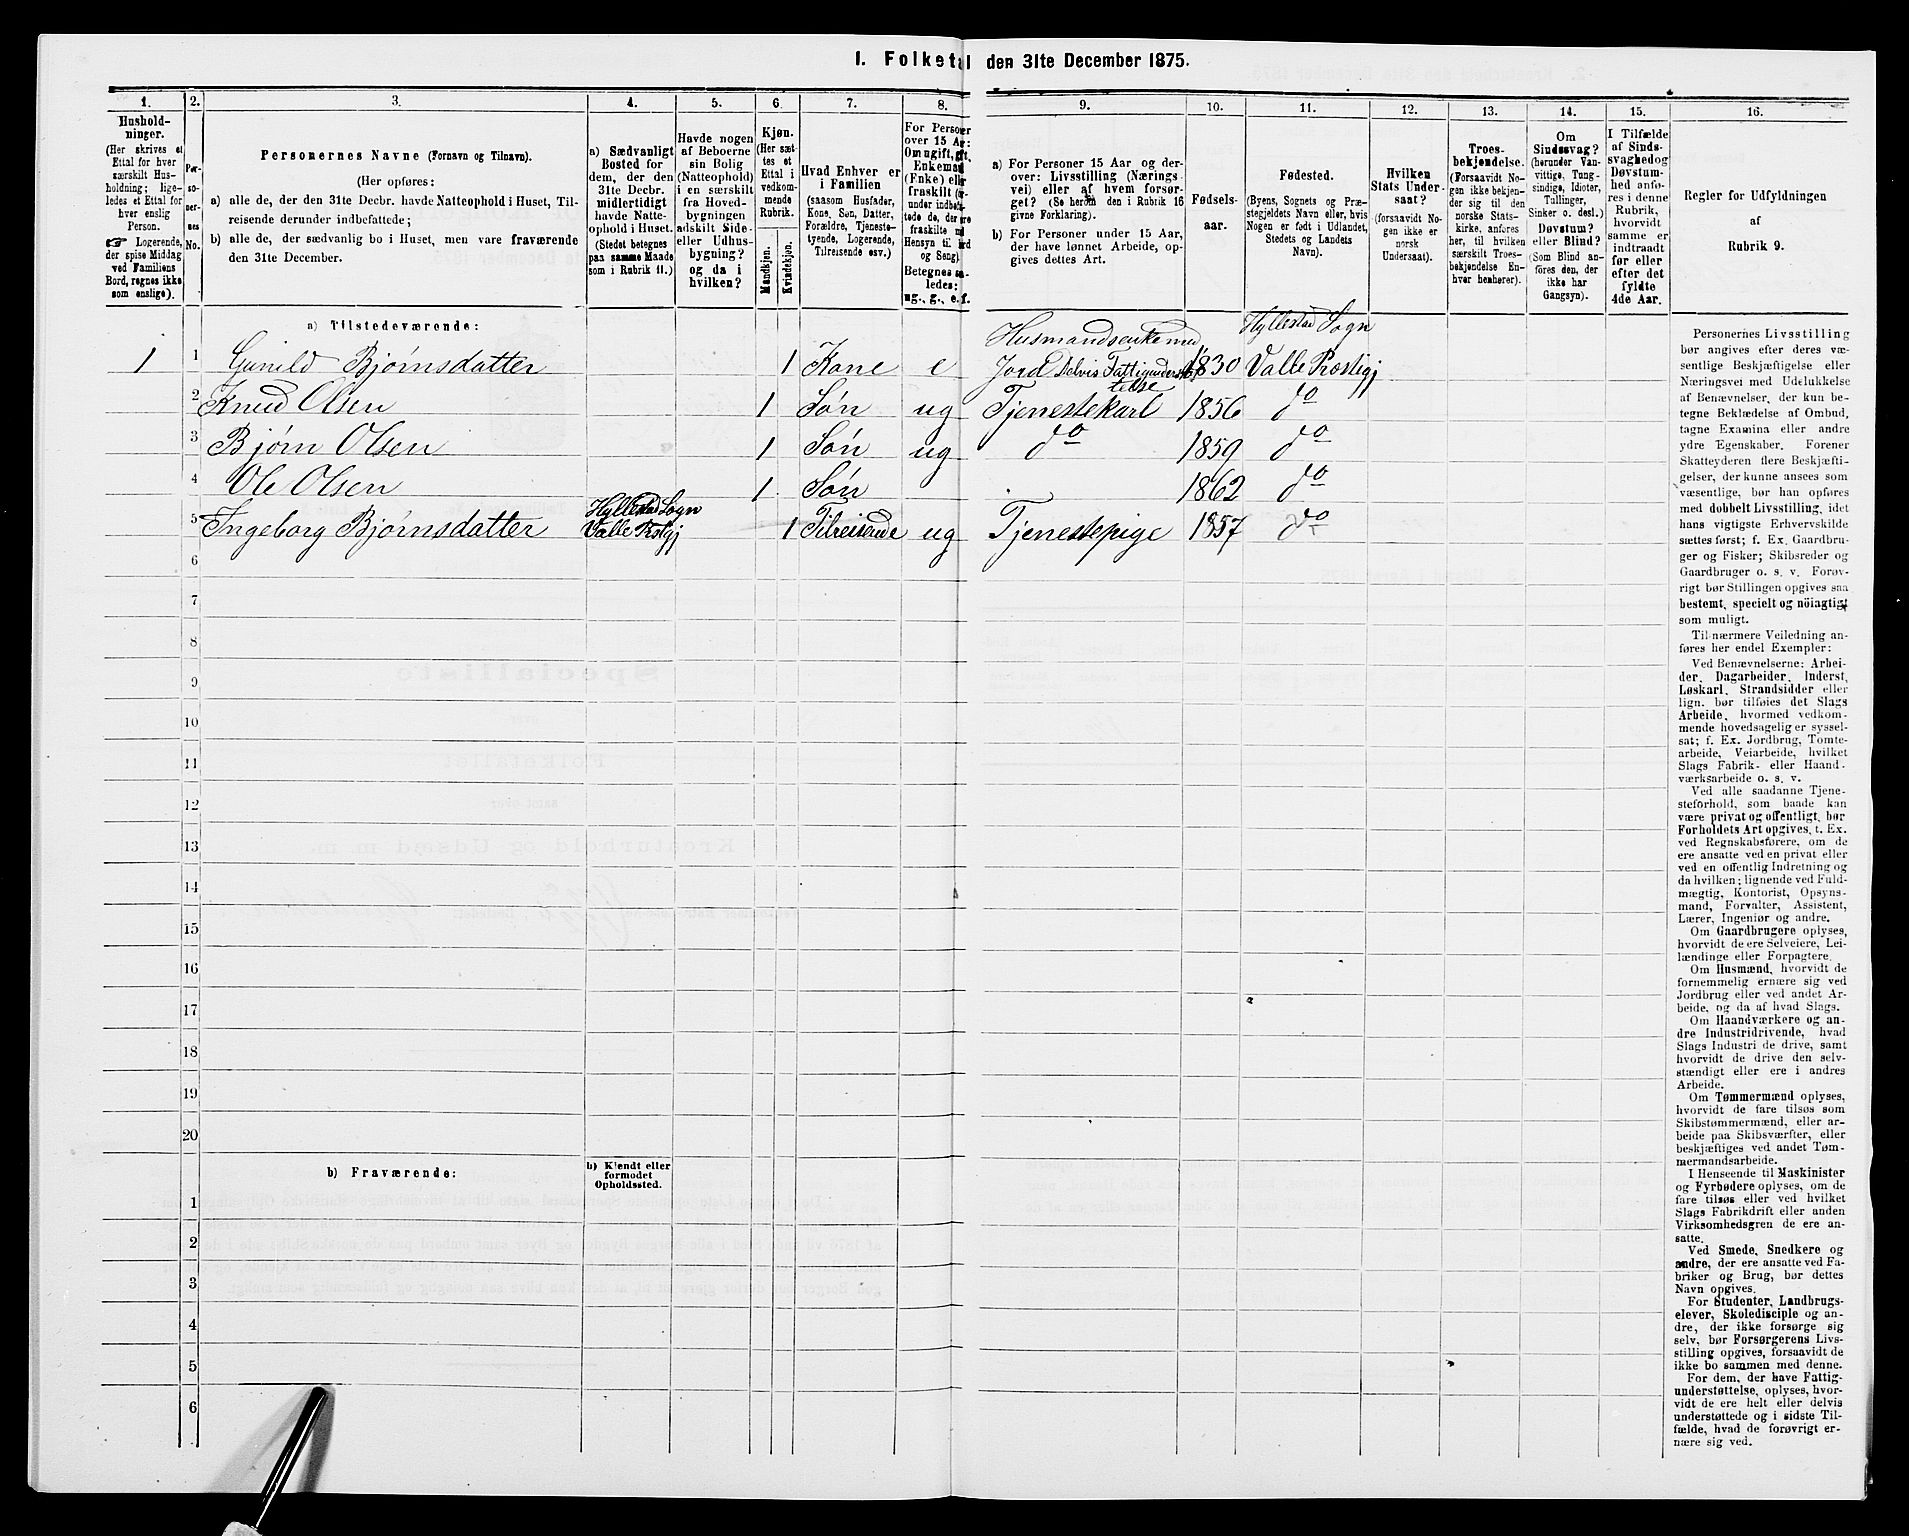 I. Folketal den 31te December 1875.
1. 2. 3. 4. 5. 6. 7. 8. 9. 10. 11. 12. 13. 14. 15. 16.
Hushold-
ninger.
(Her skrives et
Ettal for hver
særskilt Hus-
holdning; lige-
ledes et Ettal for
hver enslig
Person.
☞ Logerende,
der spise Middag
ved Familiens
Bord, regnes ikke
som enslige).
Per-
so-
ner-
nes
No.
Personernes Navne (Fornavn og Tilnavn).
(Her opføres:
a) alle de, der den 31te Decbr. havde Natteophold i Huset, Til-
reisende derunder indbefattede;
b) alle de, der sædvanlig bo i Huset, men vare fraværende
den 31te December.
a) Sædvanligt
Bosted for
dem, der den
31te Decbr.
midlertidigt
havde Natte-
ophold i Huset.
(Stedet betegnes
paa samme Maade
som i Rubrik 11.)
Havde nogen
af Beboerne
sin Bolig
(Natteophold)
i en særskilt
fra Hoved-
bygningen
adskilt Side-
eller Udhus-
bygning?
og da i
hvilken?
Kjøn.
(Her sæt-
tes et
Ettal i
vedkom-
mende
Rubrik.
Mandkjøn.
Kvindekjøn.
Hvad Enhver er
i Familien
(saasom Husfader,
Kone, Søn, Datter,
Forældre, Tjeneste-
tyende, Logerende,
Tilreisende osv.)
For Personer
over 15 Aar:
Om ugift, gift,
Enkemand
(Enke) eller
fraskilt
Betegnes saa-
ledes:
ug., g., e. f.
a) For Personer 15 Aar og der-
over: Livsstilling (Nærings-
vei) eller af hvem forsør-
get? (Se herom den i Rubrik 16
givne Forklaring).
b) For Personer under 15 Aar,
der have lønnet Arbeide, op-
gives dettes Art.
Fødsels-
aar.
Fødested.
(Byens, Sognets og Præ-
stegjeldets Navn eller, hvis
Nogen er født i Udlandet,
Stedets og Landets
Navn).
Hvilken
Stats Under-
saat?
(forsaavidt No-
gen ikke er
norsk
Undersaat).
Troes-
bekjendelse.
(Forsaavidt No-
gen ikke bekjen-
der sig til den
norske Stats-
kirke, anføres
her, til hvilken
særskilt Troes-
bekjendelse En-
hver henhører).
Om
Sindssvag?
(herunder Van-
vittige, Tung-
sindige, Idioter,
Tullinger,
Sinker o. desl.)
Døvstum?
eller Blind?
(Som Blind an-
føres den, der
ikke har
Gangsyn).
I Tilfælde
af Sinds-
svaghed og
Døvstum-
hed anfø-
res i denne
Rubrik,
hvorvidt
samme er
indtraadt
før eller
efter det
fyldte
4de Aar.
Regler for Udfyldningen
af
Rubrik 9.
a) Tilstedeværende:
Hyllestad Sogn
Husmandsenke med
1 1 Gunild Bjørnsdatter 1 Kone e Jord Delvis Fattigunderstøt 1830 Valle Præstgj
telse
2 Knud Olsen 1 Søn ug Tjenestekarl 1856 do
3 Bjørn Olsen 1 Søn ug do 1859 do
4 Ole Olsen 1 Søn 1862 do
Hyllestad Sogn
5 Ingeborg Bjørnsdatter Valle Prstgj 1 Tilreisende ug Tjenestepige 1857 do
6
7
8
9
10
11
12
13
14
15
16
17
18
19
20
b) Fraværende:
b) Kjendt eller
formodet
Opholdssted.
1
2
3
4
5
6
Personernes Livsstilling
bør angives efter deres væ-
sentlige Beskjæftigelse eller
Næringsvei med Udelukkelse
af Benævnelser, der kun be-
tegne Beklædelse af Ombud,
tagne Examina eller andre
ydre Egenskaber. Forener
Skatteyderen flere Beskjæfti-
gelser, der kunne ansees som
væsentlige, bør han opføres
med dobbelt Livsstilling, idet
hans vigtigste Erhvervskilde
sættes først; f. Ex. Gaardbru-
ger og Fisker; Skibsreder og
Gaardbruger o. s. v. Forøv-
rigt bør Stillingen opgives saa
bestemt, specielt og nöiagtigt
som muligt.
Til nærmere Veiledning an-
føres her endel Exempler:
Ved Benævnelserne: Arbei-
der, Dagarbeider, Inderst,
Løskarl, Strandsidder eller
lign. bør tilføies det Slags
Arbeide, hvormed vedkom-
mende hovedsagelig er syssel-
sat; f. Ex. Jordbrug, Tomte-
arbeide, Veiarbeide, hvilket
Slags Fabrik- eller Haand-
værksarbeide o. s. v.
Ved alle saadanne Tjene-
steforhold, som baade kan
være privat og offentligt, bør
Forholdets Art opgives, t. Ex.
ved Regnskabsførere, om de
ere ansatte ved en privat eller
ved en offentlig Indretning og
da hvilken; lignende ved Fuld-
mægtig, Kontorist, Opsyns-
mand, Forvalter, Assistent,
Lærer, Ingeniør og andre.
Om Gaardbrugere oplyses,
hvorvidt de ere Selveiere, Lei-
lændinge eller Forpagtere.
Om Husmænd, hvorvidt de
fornemmelig ernære sig ved
Jordbrug eller ved andet Ar-
beide, og da af hvad Slags.
Om Haandværkere og an-
dre Industridrivende, hvad
Slags Industri de drive, samt
hvorvidt de drive den selv-
stændigt eller ere i andres
Arbeide.
Om Tømmermænd oplyses,
hvorvidt de fare tilsøs som
Skibstømmermænd, eller ar-
beide paa Skibsværfter, eller
beskjæftiges ved andet Tøm-
mermandsarbeide.
I Henseende til Maskinister
og Fyrbødere oplyses, om de
fare tilsøs eller ved hvilket
Slags Fabrikdrift eller anden
Virksomhedsgren de ere an-
satte.
Ved Smede, Snedkere og
andre, der ere ansatte ved Fa-
briker og Brug, bør dettes
Navn opgives.
For Studenter, Landbrugs-
elever, Skoledisciple og an-
dre, der ikke forsørge sig
selv, bør Forsørgerens Livs-
stilling opgives, forsaavidt de
ikke bo sammen med denne.
For dem, der have Fattig-
understøttelse, oplyses, hvor-
vidt de ere helt eller delvis
understøttede og i sidste Til-
fælde, hvad de forøvrigt er-
nære sig ved.